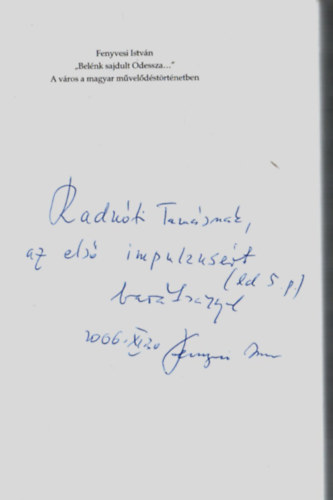 Fenyvesi István
„Belénk sajdult Odessza…”
A város a magyar művelődéstörténetben
Radnóti Tamásnak,
az első impulzusért
(ld 5 p)
barátsággal
2006. XI. 20 Fenyvesi István